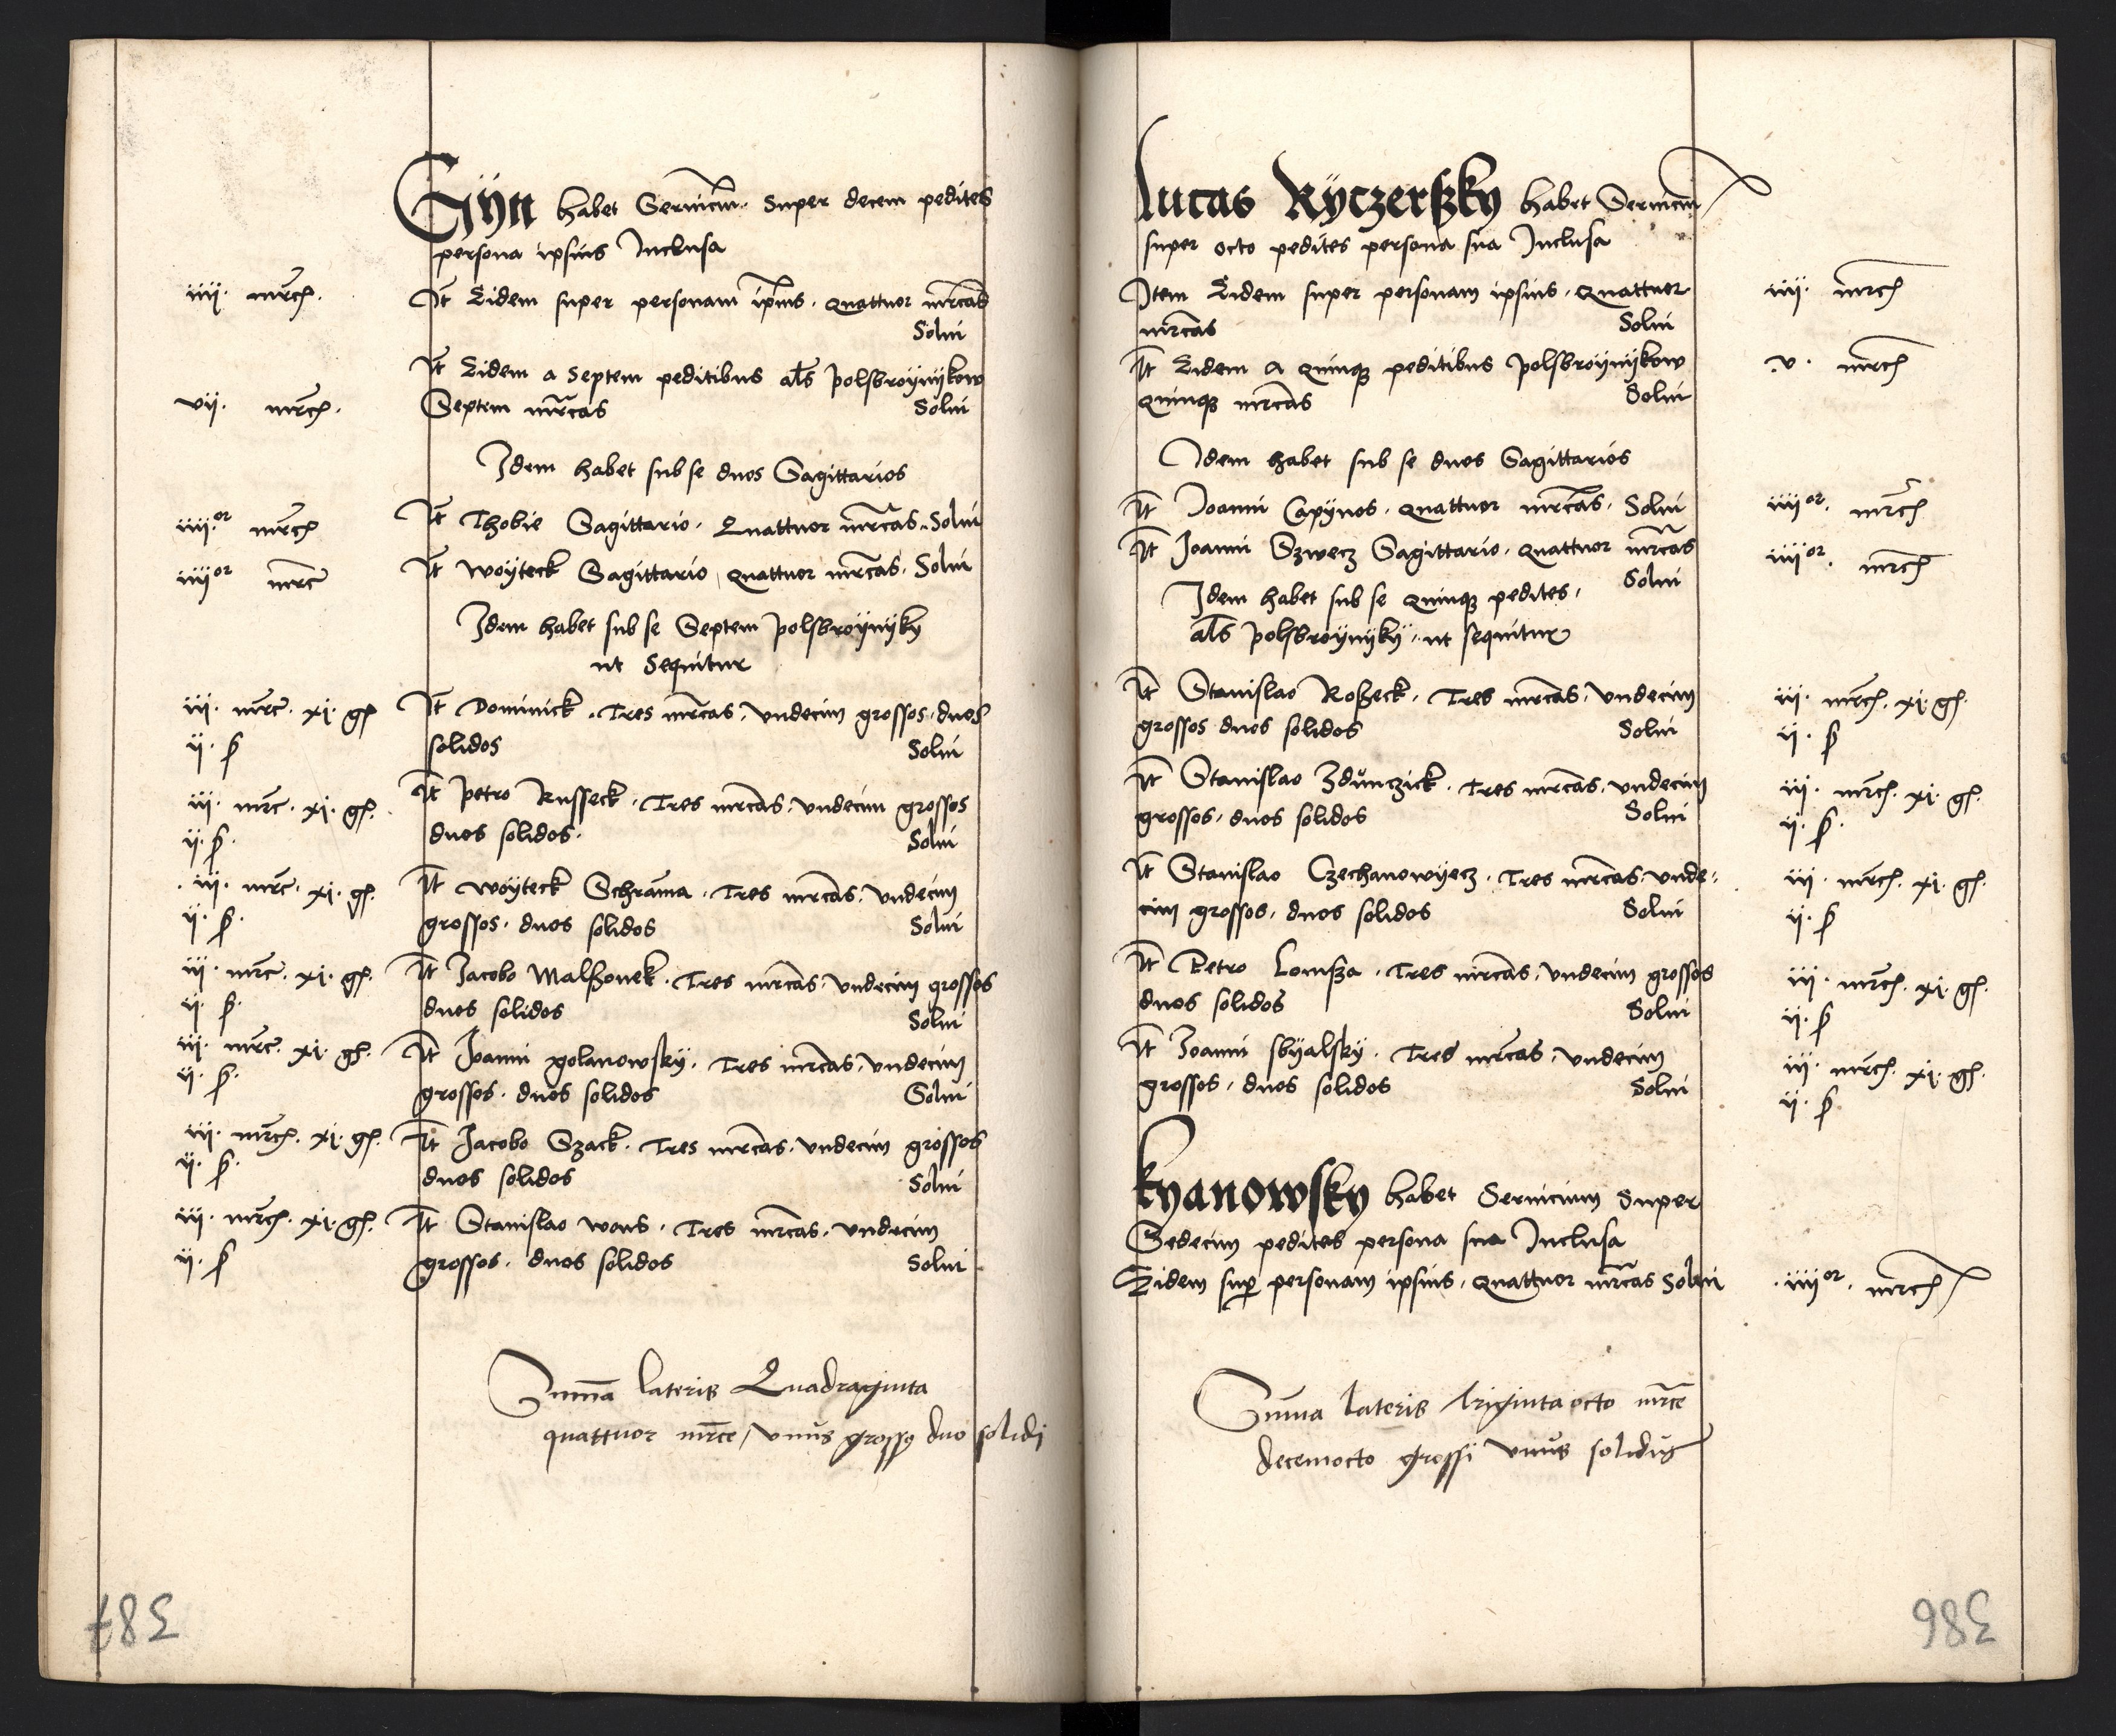 Gyn habet Seruiciu͞. Super decem pedites
persona ipsius Inclusa
iiij. mrcę. It͞ Eidem super personam ip͞ius. quattuor mrcas
Solui
It͞ Eidem a Septem peditibus al͞s polsbroÿnÿkow
vij. mrcę. Septem mrcas Solui
Idem habet sub se duos Sagittarios
iiij.or mrcę It͞ Thobie Sagittario. Quattuor mrcas. Solui
iiijor mrc It͞ Woÿteck Sagittario, quattuor mrcas. Solui
Idem habet sub se Septem polsbroÿnÿky
ut Sequitur
iij. mrc. xj. gͬ It͞ Dominick. Tres mrcas, vndecim grossos, duos
ij. ß solidos Solui
iij. mrc. xj. gͬ. It͞ petro Russeck. Tres mrcas, vndecim grossos
ij. ß. duos solidos. Solui
iij. mrc. xj. gͬ. It͞ Woÿteck Schrama. Tres mrcas, vndecim
ij. ß. grossos, duos solidos Solui
iij. mrc. xj. gͬ. It͞ Jacobo Malßonek. Tres mrcas, vndecim grossos
ij. ß. duos solidos Solui
iij. mrc. xj. gͬ. It͞ Joanni golanowskÿ. Tres mrcas, vndecim
ij. ß. grossos, duos solidos Solui
iij. mrcę. xj. gͬ. It͞ Jacobo Szack. Tres mrcas, vndecim grossos
ij. ß. duos solidos Solui
iij. mrcę. xj. gͬ. It͞ Stanislao wons. Tres mrcas, vndecim
ij. ß grossos, duos solidos Solui
Sum͞a lateris Quadraginta
quattuor mrce, vnus grossꝰ duo solidi
387
Lucas Rÿczerßky habet Seruiciu͞
super octo pedites persona sua Inclusa
Item Eidem super personam ipsius, quattuor iiij. mrcę
mrcas Solui
It͞ Eidem a quinqꝫ peditibus polsbroÿnÿkow .v. mrcę
quinqꝫ mrcas Solui
Idem habet sub se duos Sagittarios
It͞ Joanni Capÿnos. quattuor mrcas. Solui iiijor. mrcę
It͞ Joanni Szwecz Sagittario, quattuor mrcas iiijor. mrcę
Solui
Idem habet sub se quinqꝫ pedites,
al͞s polsbroÿnÿkÿ. ut sequitur
It͞ Stanislao Roßeck. Tres mrcas, vndecim iij. mrcę. xj. gͬ.
grossos duos solidos Solui ij. ß
It͞ Stanislao Zdunczick. Tres mrcas, vndecim iij. mrcę. xj. gͬ.
grossos, duos solidos Solui ij. ß.
It͞ Stanislao Czechanowÿecz. Tres mrcas, vnde- iij. mrcę. xj. gͬ.
cim grossos, duos solidos Solui ij. ß
It͞ Petro Lomßa. Tres mrcas, vndecim grossos iij. mrcę. xj. gͬ.
duos solidos Solui ij. ß
It͞ Joanni sbÿalskÿ. Tres mrcas, vndecim iij. mrcę. xj. gͬ.
grossos, duos solidos Solui ij. ß.
kyanowsky habet Seruicium Super
Sedecim pedites persona sua Inclusa
Eidem suꝑ personam ipsius, quattuor mrcas Solui .iiijor. mrcę
Sum͞a lateris trigintaocto mrce
decemocto grossi vnus solidus
386